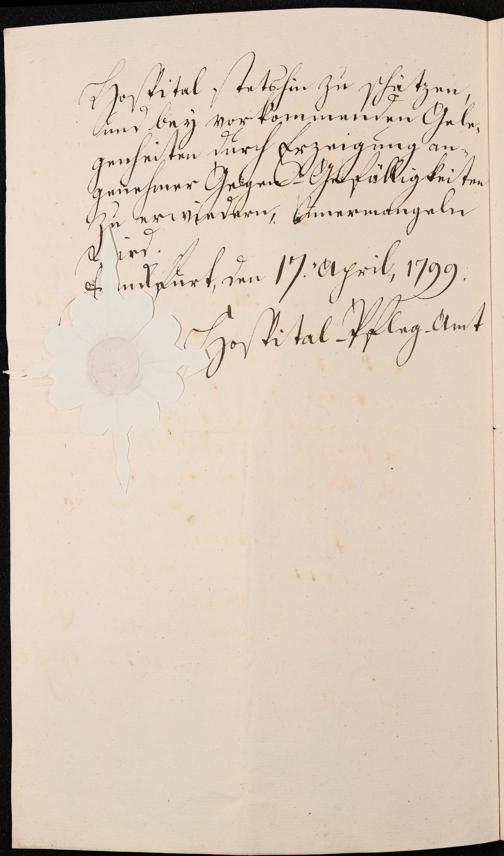 Hospital stetshin zu schätzen,
und bey vorkommenden Gele-
genheiten durch Erzeigung an-
genehmer Gegen-Gefälligkeiten
zu erwiedern, ohnermangeln
wird.
den 17. April, 1799.
Hospital-Pfleg-Amt